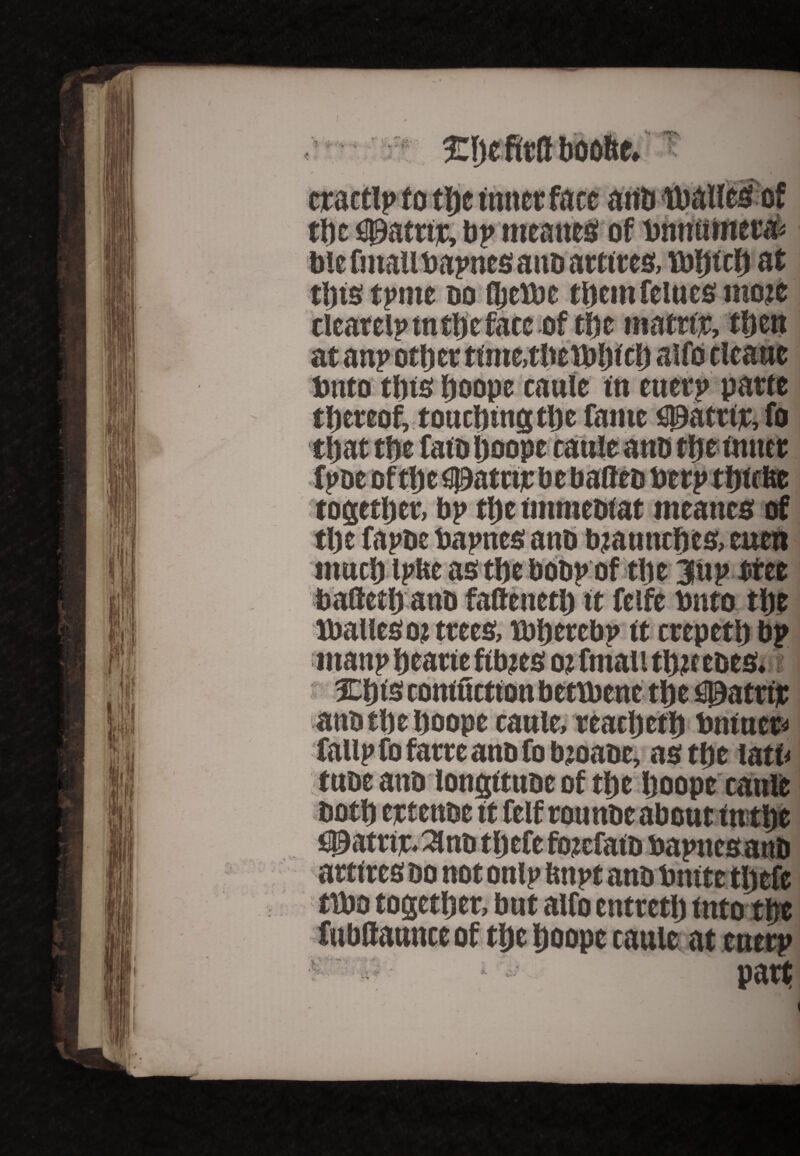 The first booke.
exactly to the inner face and walles of
the Matrix, by meanes of vnnumera-
ble small vaynes and artires, which at
this tyme do shewe themselues more
clearely in the face of the matrix, then
at any other time, the which also cleaue
vnto this hoope caule in euery parte
thereof, touching the same Matrix, so
that the said hoope caule and the inner
syde of the Matrix be basted very thicke
together, by the immediat meanes of
the sayde vaynes and braunches, euen
much lyke as the body of the Juy tree
basteth and fasteneth it selfe vnto the
walles or trees, whereby it crepeth by
many hearie fibres or small threedes.
This coniuction betwene the Matrix
and the hoope caule, reacheth vniuer-
sally so farre and so broade, as the lati-
tude and longitude of the hoope caule
doth extende it self rounde about in the
Matrix. And these foresaid vaynes and
artires do not only knyt and vnite these
two together, but also entreth into the
substaunce of the hoope caule at euery
part